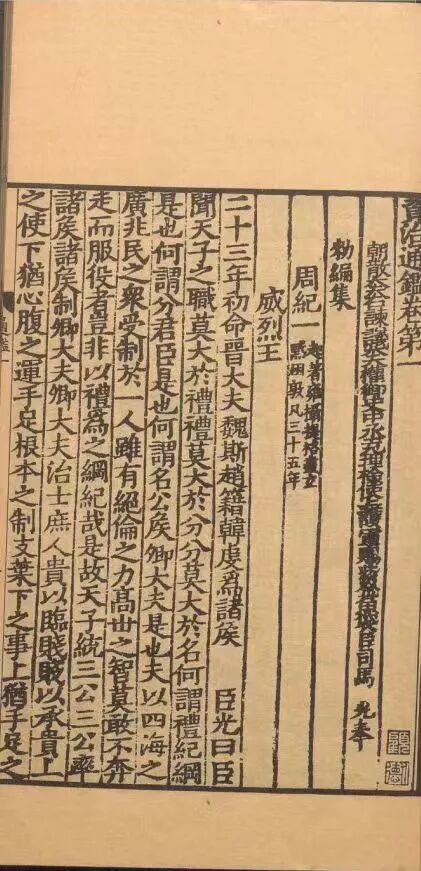 資治通鑑卷第一
朝散大夫右諫議大夫權御史中丞充理檢使上護軍賜紫金魚袋臣司馬 光奉
勑編集
周紀一 起著雍攝提格盡玄
黓困敦凡三十五年
威烈王
二十三年初命晉大夫魏斯趙籍韓虔爲諸侯 臣光曰臣
聞天子之職莫大於禮禮莫大於分分莫大於名何謂禮紀綱
是也何謂分君臣是也何謂名公侯卿大夫是也夫以四海之
廣兆民之衆受制於一人雖有絕倫之力髙世之智莫敢不奔
走而服役者豈非以禮爲之綱紀哉是故天子統三公三公率
諸侯諸侯制卿大夫卿大夫治士庶人貴以臨賤賤以承貴上
之使下猶心腹之運手足根本之制支葉下之事上猶手足之